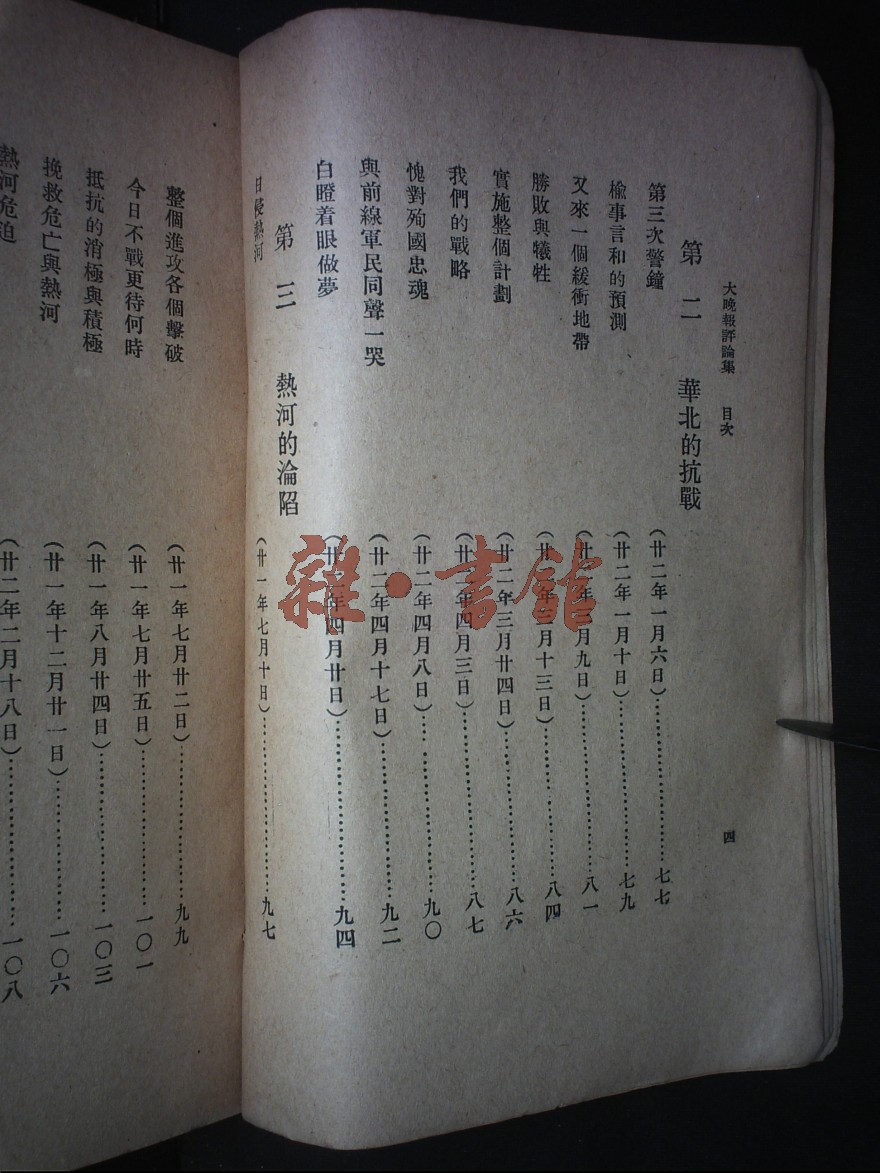 大晚報評論集 目次
四
第二 華北的抗戰
第三次警鐘 (廿二年一月六日)……七七
榆事言和的預測 (廿二年一月十日)……七九
又來一個緩衝地帶 (廿二年三月九日)……八一
勝敗與犧牲 (廿二年三月十三日)……八四
實施整個計劃 (廿二年三月廿四日)……八六
我們的戰略 (廿二年四月三日)……八七
愧對殉國忠魂 (廿二年四月八日)……九〇
與前線軍民同聲一哭 (廿二年四月十七日)……九二
白瞪着眼做夢 (廿二年四月廿日)……九四
第三 熱河的淪陷
日侵熱河 (廿一年七月十日)……九七
整個進攻各個擊破 (廿一年七月廿二日)……九九
今日不戰更待何時 (廿一年七月廿五日)……一〇一
抵抗的消極與積極 (廿一年八月廿四日)……一〇三
挽救危亡與熱河 (廿一年十二月廿一日)……一〇六
熱河危迫 (廿二年二月十八日)……一〇八
雜·書館